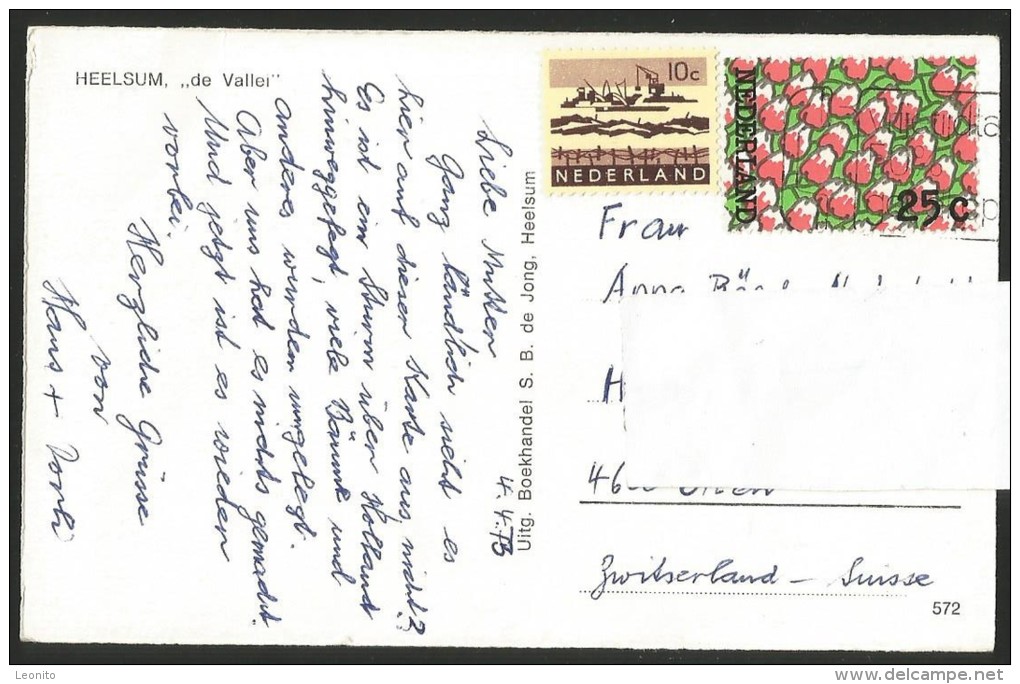 HEELSUM, „de Vallei"
4.4.73
Liebe Mutter
Ganz ländlich sieht es
hier auf dieser Karte aus, nicht?
Es ist ein Sturm über Holland
hinweggefegt, viele Bäume und
anderes wurden umgelegt.
Aber uns hat es nichts gemacht.
Und jetzt ist es wieder
vorbei.
Herzliche Grüsse
von
Hans + Dorli
Uitg. Boekhandel S. B. de Jong, Heelsum
10c
NEDERLAND
NEDERLAND
25c
Frau
Anna
Zwitserland - Suisse
572
Leonito
www.delcampe.net